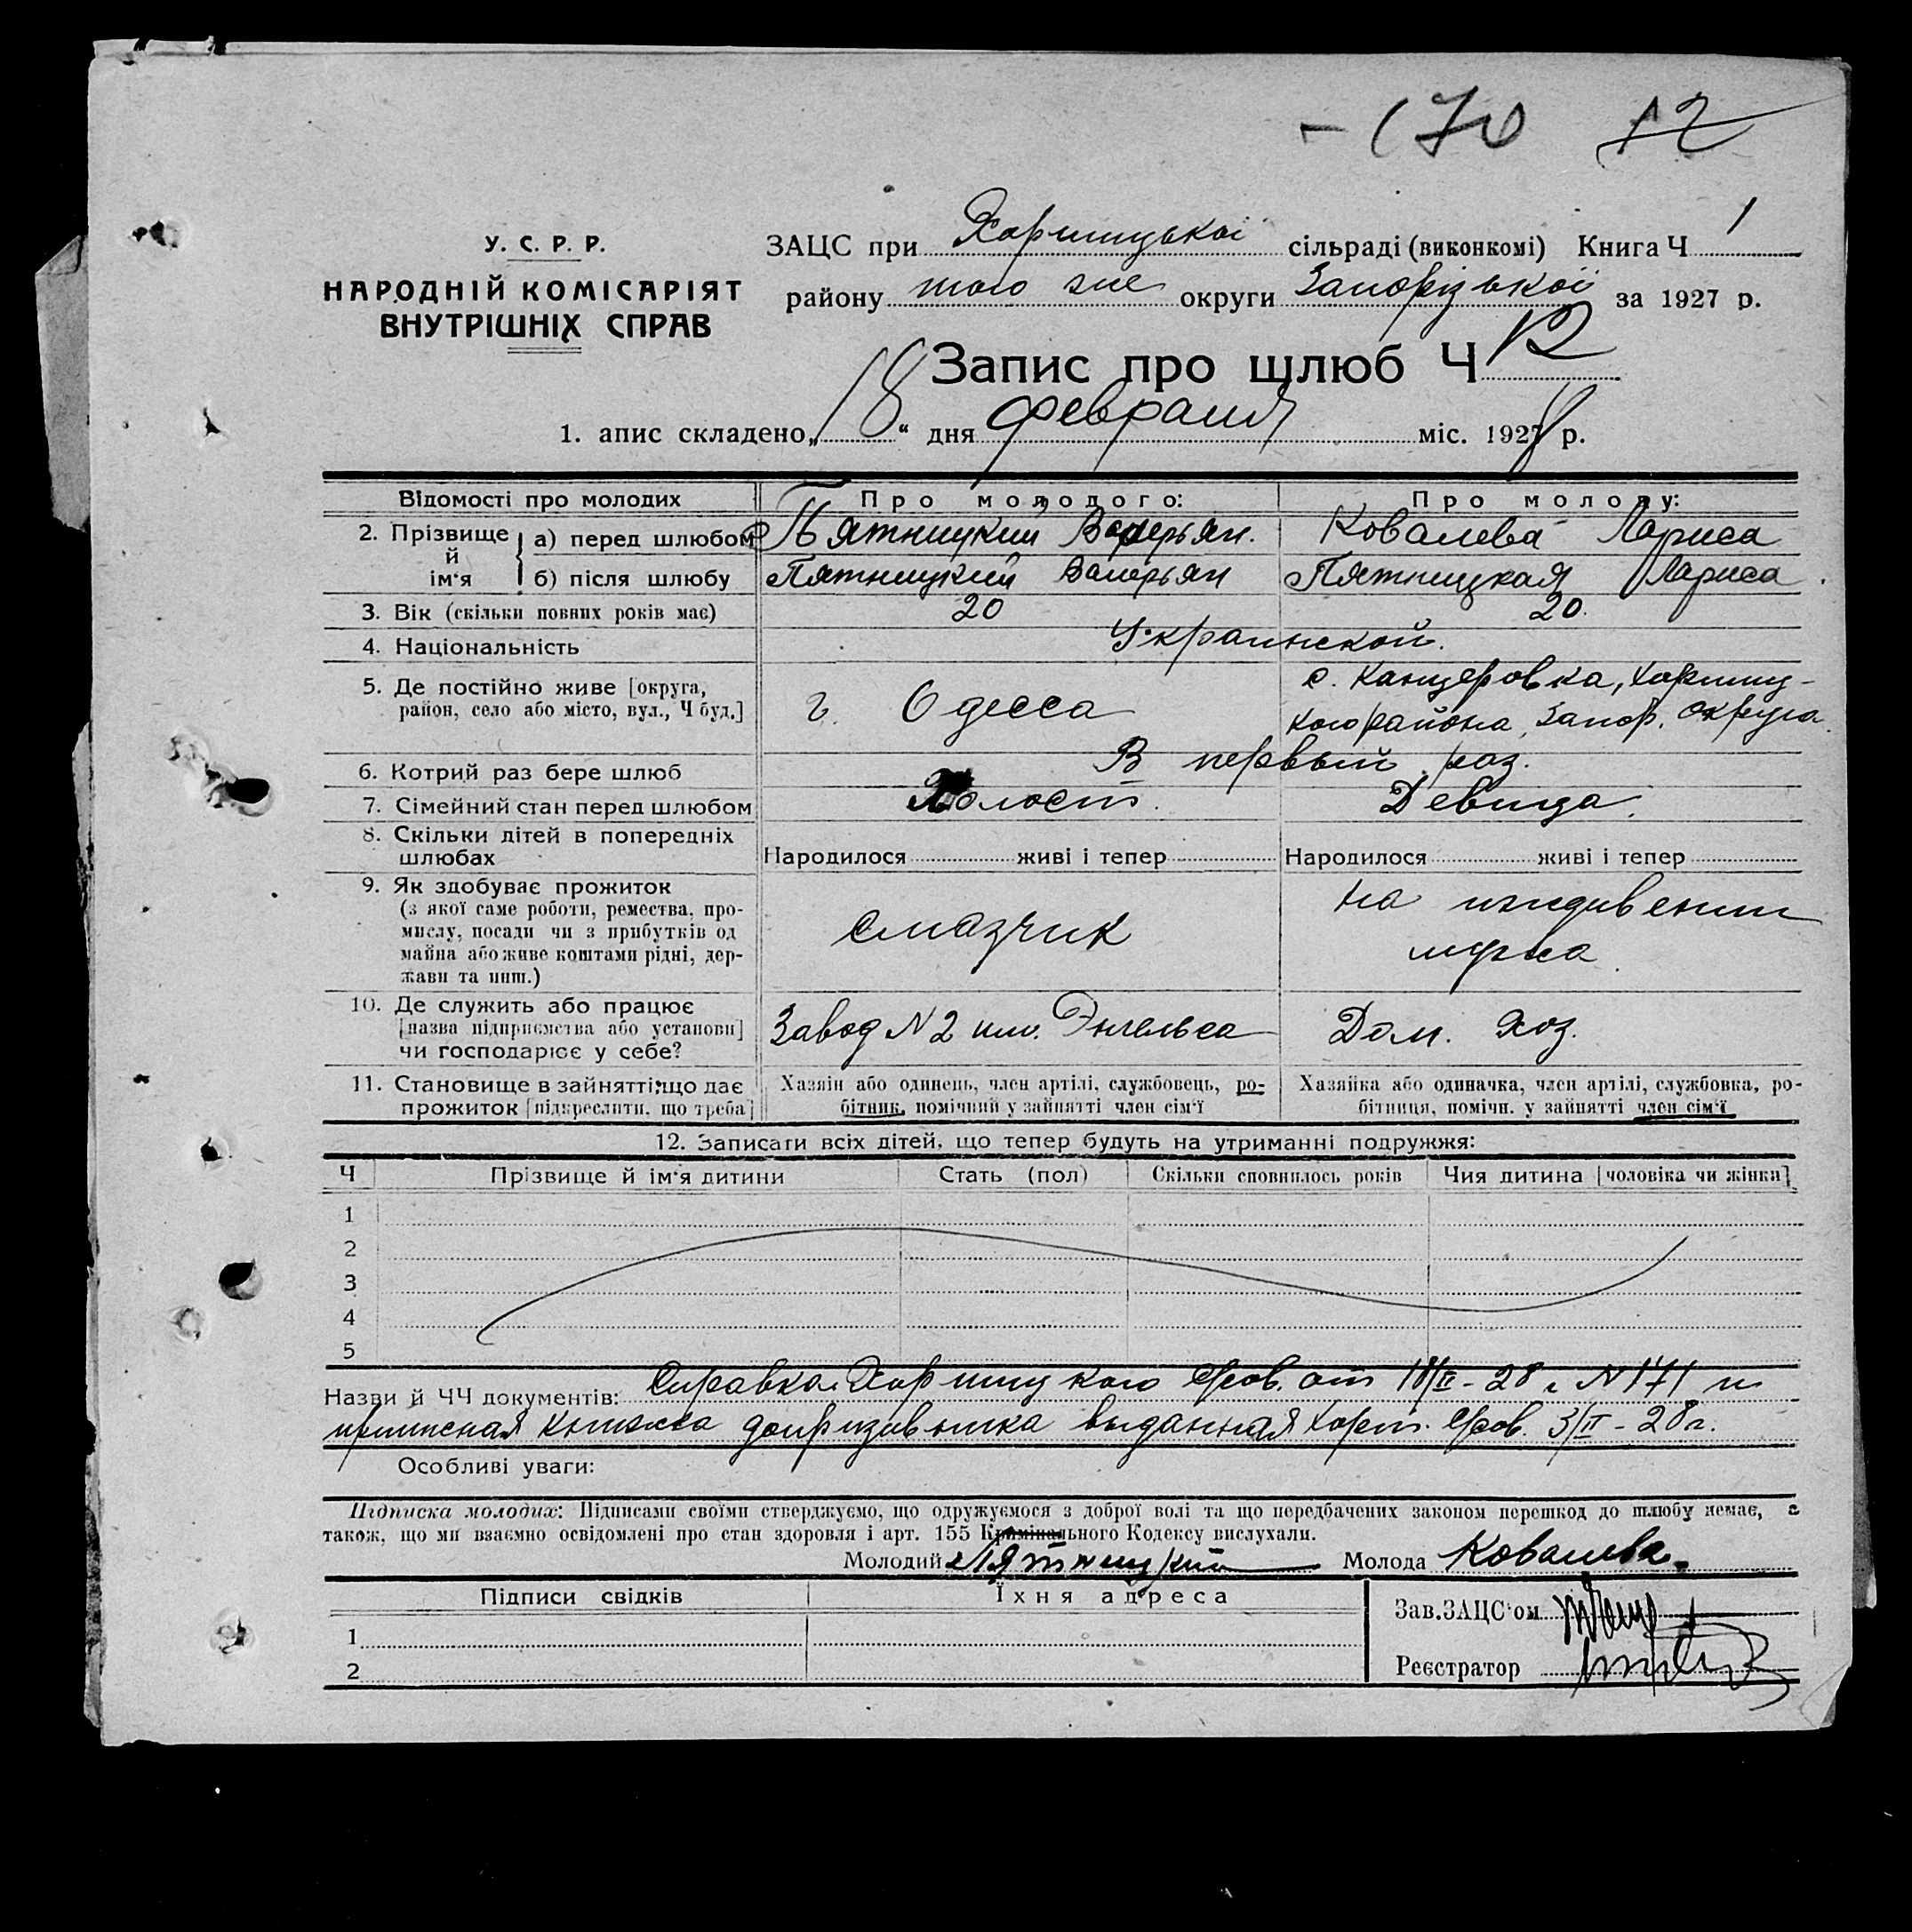 - 170 12
У. С. Р. Р.
НАРОДНІЙ КОМІСАРІЯТ
ВНУТРІШНІХ СПРАВ
ЗАЦС при Хортицької сільраді (виконкомі) Книга Ч 1
району того же округи Запорізької за 1927 р.
Запис про шлюб Ч 12
1. апис складено „18“ дня февраля міс. 1928 р.
Відомості про молодих Про молодого: Про молоду:
2. Прізвище й ім'я а) перед шлюбом Пятницкий Валерьян. Ковалева Лариса
б) після шлюбу Пятницкий Валерьян Пятницкая Лариса.
3. Вік (скільки повних років має) 20 20.
4. Національність Украинской.
5. Де постійно живе [округа, район, село або місто, вул., Ч буд.] г. Одесса с. Канцеровка, Хортиц-
кого района, Запор. округа.
6. Котрий раз бере шлюб В первый раз.
7. Сімейний стан перед шлюбом Холост. Девица.
8. Скільки дітей в попередніх шлюбах Народилося живі і тепер Народилося живі і тепер
9. Як здобуває прожиток
(з якої саме роботи, ремества, про-
мислу, посади чи з прибутків од
майна або живе коштами рідні, дер-
жави та инш.) смазчик на иждивении
мужа.
10. Де служить або працює
[назва підприємства або установи]
чи господарює у себе? Завод N 2 им. Энгельса Дом. хоз.
11. Становище в зайнятті, що дає
прожиток [підкреслити, що треба]
Хазяїн або одинець, член артілі, службовець, ро-
бітник, помічний у зайнятті член сім'ї
Хазяйка або одиначка, член артілі, службовка, ро-
бітниця, помічн. у зайнятті член сім'ї
12. Записати всіх дітей, що тепер будуть на утриманні подружжя:
Ч Прізвище й ім'я дитини Стать (пол) Скільки сповнилось років Чия дитина [чоловіка чи жінки]
1
2
3
4
5
Назви й ЧЧ документів: Справка Хортицкого с/сов. от 18/II-28 г. N 171 и
приписная книжка допризывника выданная Хорт. с/сов. 3/II-28 г.
Особливі уваги:
Підписка молодих: Підписами своїми стверджуємо, що одружуємося з доброї волі та що передбачених законом перешкод до шлюбу немає, а
також, що ми взаємно освідомлені про стан здоровля і арт. 155 Кримінального Кодексу вислухали.
Молодий Пятницкий Молода Ковалева.
Підписи свідків Їхня адреса
1
2
Зав.ЗАЦС'ом
Реєстратор